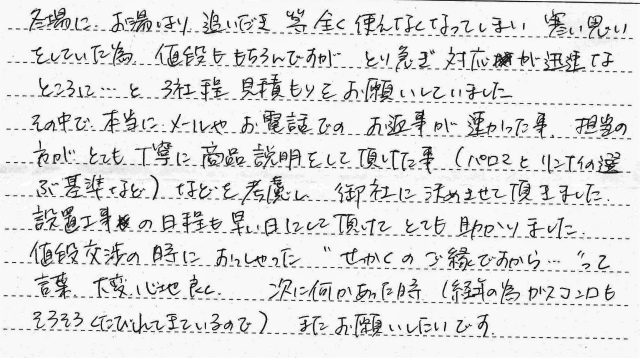 冬場に、お湯はり、追いだき 等 全く使えなくなってしまい 寒い思い
をしていた為、値段ももちろんですが とり急ぎ 対応が迅速な
ところに…と 3社程 見積もりを お願いしていました
その中で、本当に メールや お電話での お返事が 速かった事、担当の
方が とても 丁寧に 商品説明をして頂けた事 (パロマと リンナイの選
ぶ基準など) などを 考慮し、御社に 決めさせて頂きました。
設置工事の日程も早い日にして頂けて とても 助かりました。
値段交渉の時に おっしゃった “せっかくのご縁ですから…”って
言葉、大変心地良く、 次に何かあった時 (経年の為ガスコンロも
そろそろくたびれてきているので) またお願いしたいです。